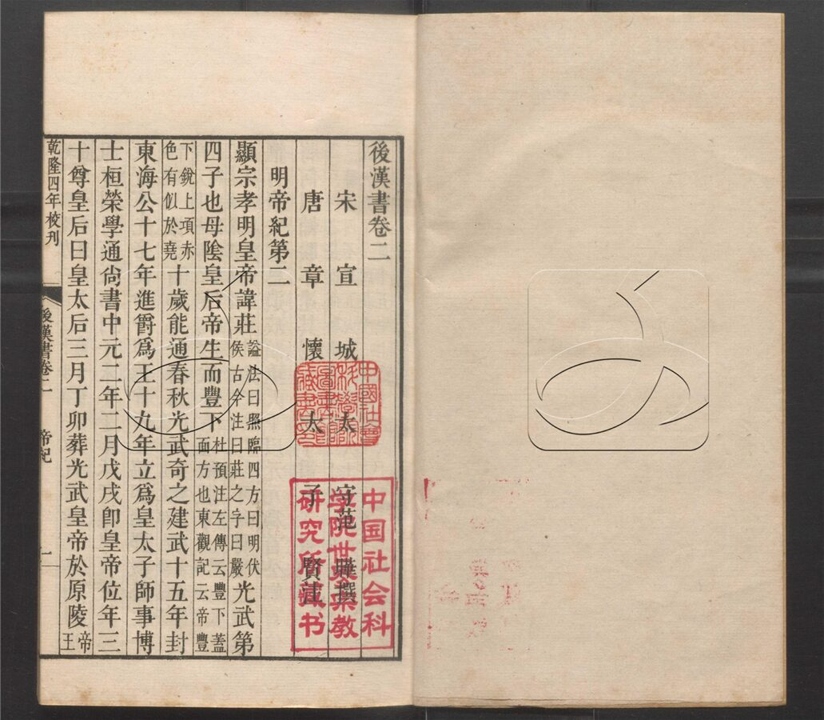 後漢書卷二
宋宣城太守范曄撰
唐章懷太子賢注
明帝紀第二
顯宗孝明皇帝諱莊
諡法曰照臨四方曰明伏
侯古今注曰莊之字曰嚴
光武第
四子也母陰皇后帝生而豐下
杜預注左傳云豐下蓋
面方也東觀記云帝豐
下銳上項赤
色有似於堯
十歲能通春秋光武奇之建武十五年封
東海公十七年進爵爲王十九年立爲皇太子師事博
士桓榮學通尚書中元二年二月戊戌卽皇帝位年三
十尊皇后曰皇太后三月丁卯葬光武皇帝於原陵
帝
王
乾隆四年校刊
後漢書卷二
帝紀
一
中国社会科
学院世界宗教
研究所藏书